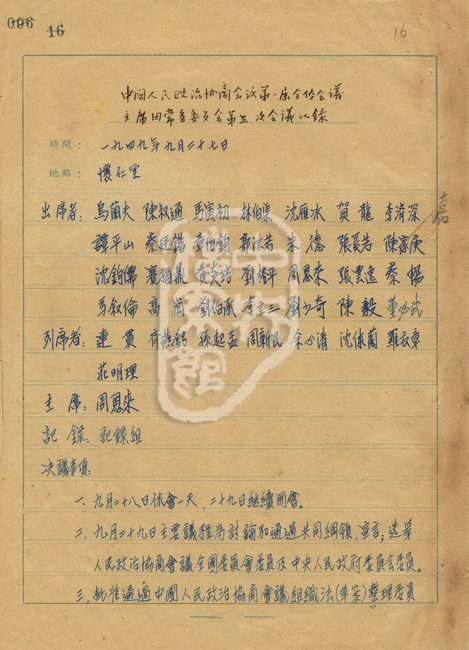 006 16
16
中國人民政治协商会议第一届全体会議
主席団常务委員会第次会議记錄
時間：一九四九年九月二十七日
地點：懷仁堂
出席者：烏蘭夫 陳叔通 馬寅初 林伯渠 沈雁冰 賀龍 李濟深
譚平山 蔡廷鍇 章伯鈞 郭沫若 朱德 張奚若 陳嘉庚
嘉
沈鈞儒 賽福鼎 黃炎培 劉格平 周恩來 張雲逸 蔡暢
馬叙倫 高崗 劉伯承 李立三 劉少奇 陳毅 董必武
列席者：連貫 齊燕銘 孫起孟 周新民 余心清 沈体蘭 羅叔章
莊明理
主席：周恩來
記錄：記錄組
决議事項：
一、九月二十八日休會一天，二十九日繼續開會。
二、九月二十九日主要議程為討論和通過共同綱領，宣言；选举
人民政治協商會議全國委員會委員及中央人民政府委員会委員。
三、批准通過中國人民政治協商會議組織法(草案)整理委員